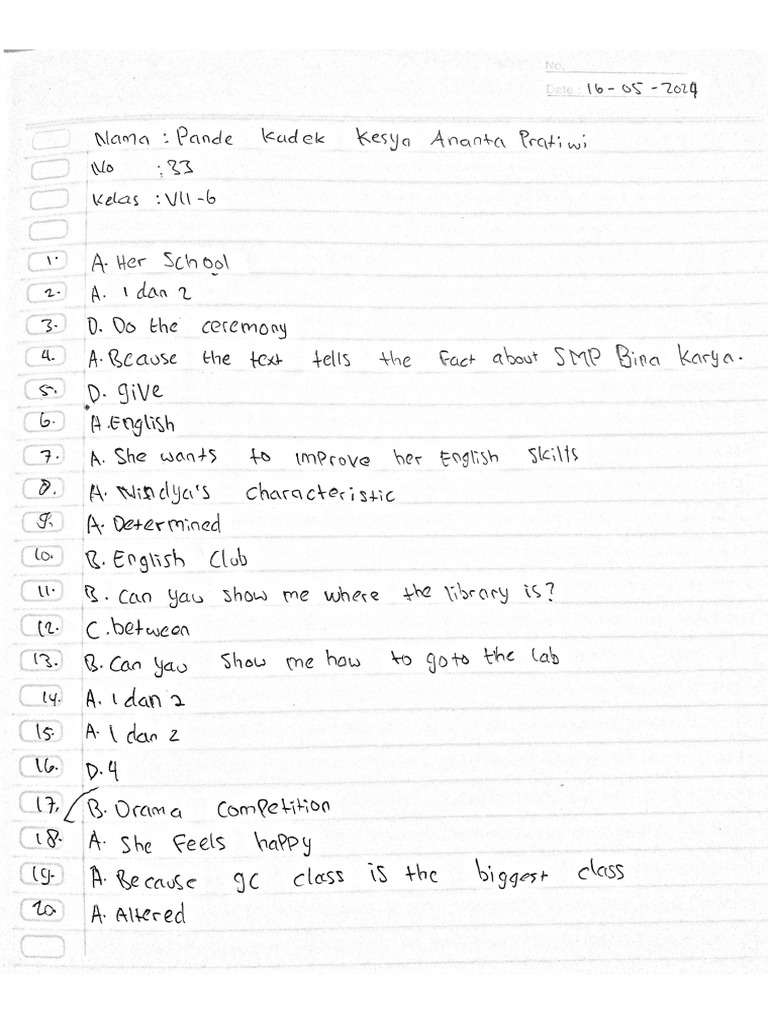 No.
Date: 16-05-2024
Nama : Pande Kadek Kesya Ananta Pratiwi
No : 33
Kelas : VII-6
1. A. Her School
2. A. 1 dan 2
3. D. Do the ceremony
4. A. Because the text tells the fact about SMP Bina Karya.
5. D. give
6. A. English
7. A. She wants to improve her English skills
8. A. Nindya's characteristic
9. A. Determined
10. B. English Club
11. B. Can you show me where the library is?
12. C. between
13. B. Can you show me how to go to the lab
14. A. 1 dan 2
15. A. 1 dan 2
16. D. 4
17. B. Drama competition
18. A. She feels happy
19. A. Because 9C class is the biggest class
20. A. Altered